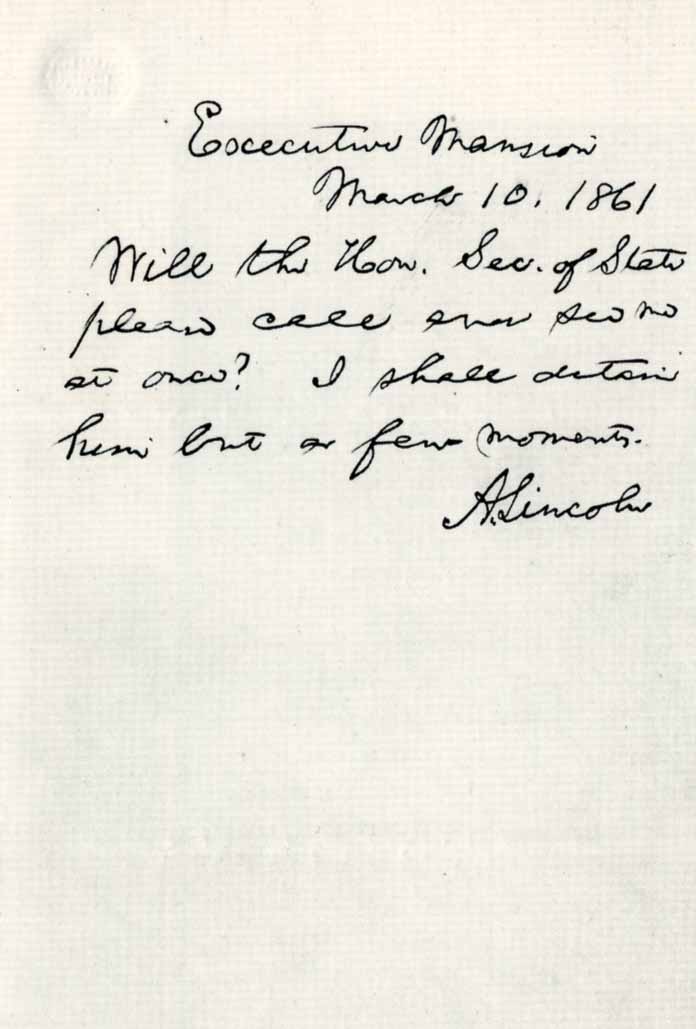 Executive Mansion
March 10, 1861
Will the Hon. Sec. of State
please call and see me
at once? I shall detain
him but a few moments.
A. Lincoln